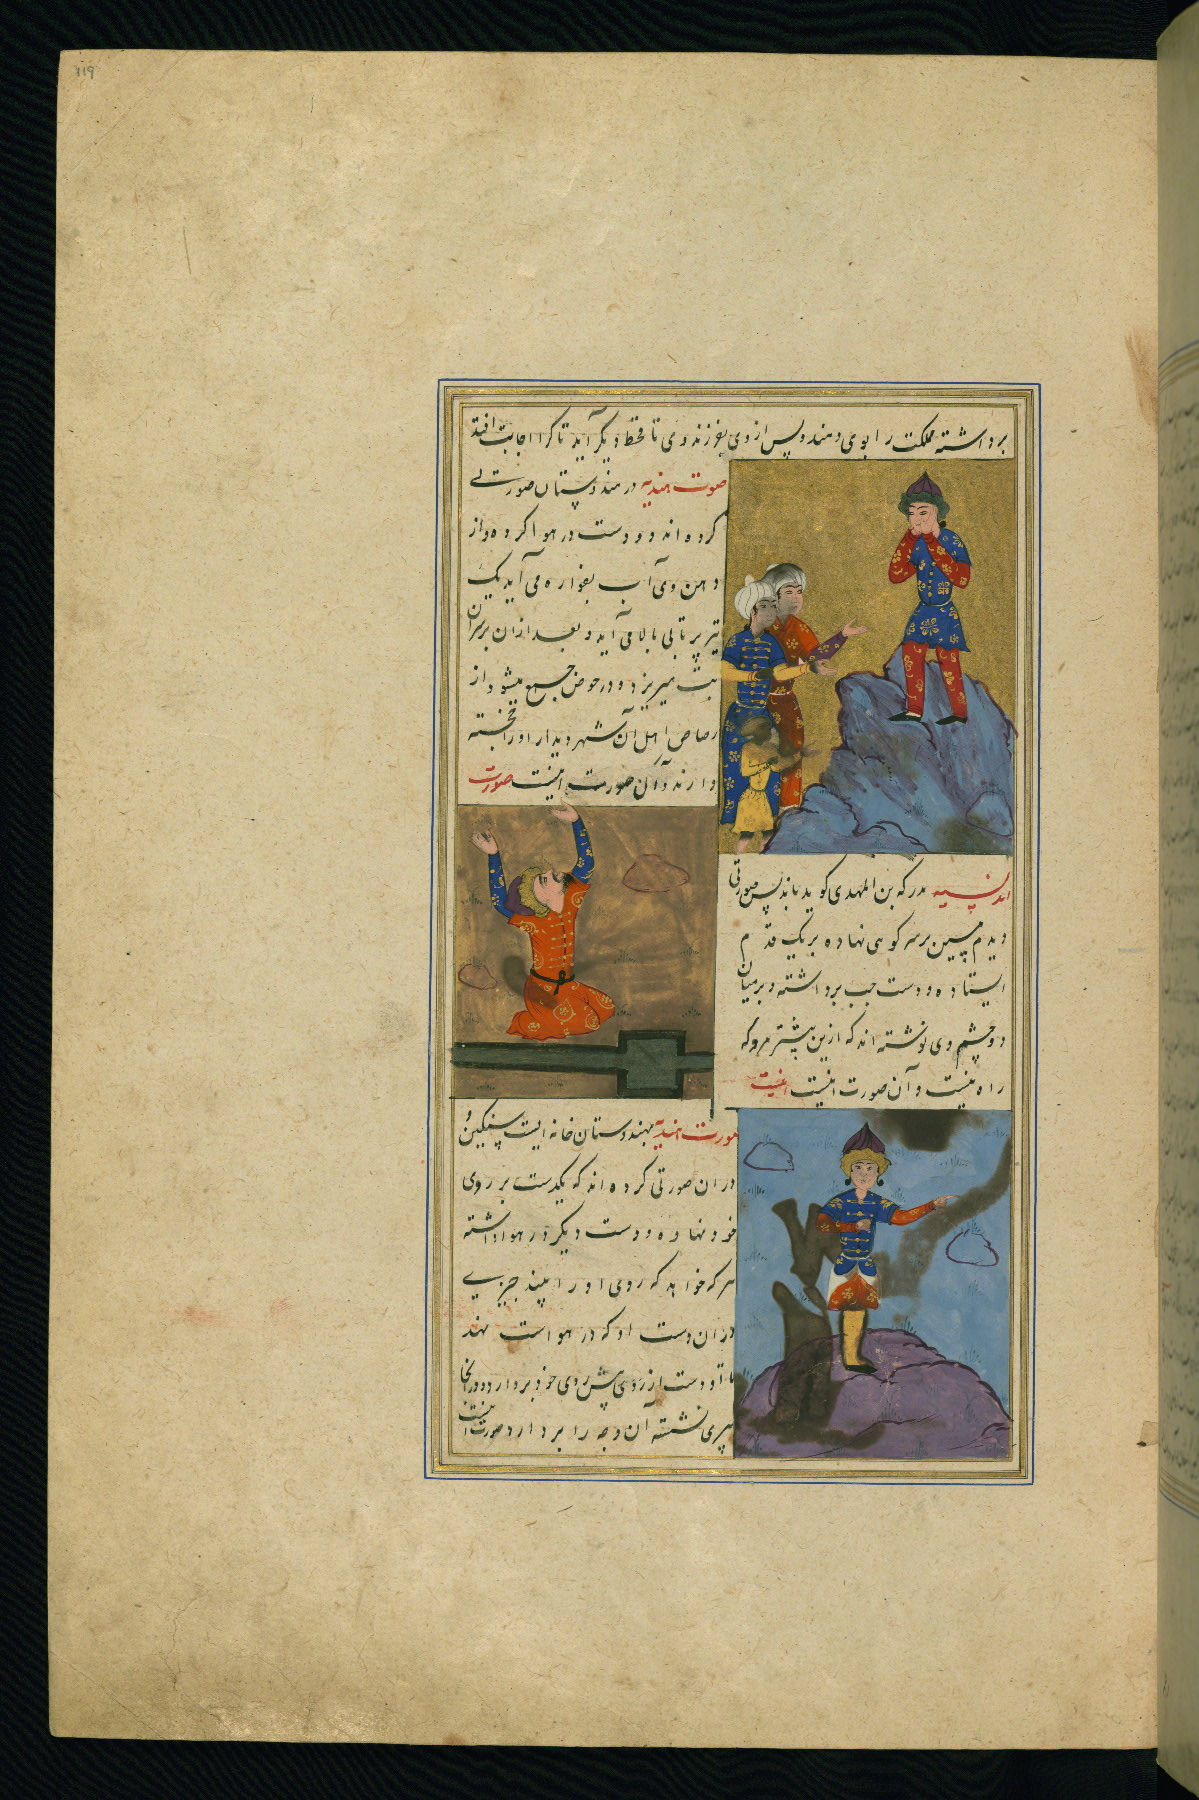 برداشته مملکت را بوی دهند و پس از وی بفرزند وی تا قحط دیگر آید تا کرا اجابت افتد
صوت هندیه در هندوستان صورتی
کرده اند و دست در هوا کرده و از
دهن وی آب بفواره می آید یک
تیر پرتابی بالا می آید و بعد ازان بر سر آن
بت میریزد و در حوض جمع میشود از
رصاص اهل آن شهر دیدار او را خجسته
دارند و آن صورت اینست صورت
اندلسیه مدرکه بن المهدی کوید باندلس صورتی
دیدم مسین بر سر کوهی نهاده بر یک قدم
ایستاده و دست چپ برداشته و بر میان
دو چشم وی نوشته اند که ازین پیشتر مرو که
راه نیست و آن صورت اینست اینست
صورت هندیه بهندوستان خانه ایست سنگین و
دران صورتی کرده اند که یکدست بر روی
خود نهاده و دست دیگر در هوا داشته
هر که خواهد که روی او را بیند چیزی
دران دست او که در هواست نهد
تا او دست از روی پیش روی خود بردارد و در آنجا
پیری نشسته آن وجه را بردارد صورت اینست